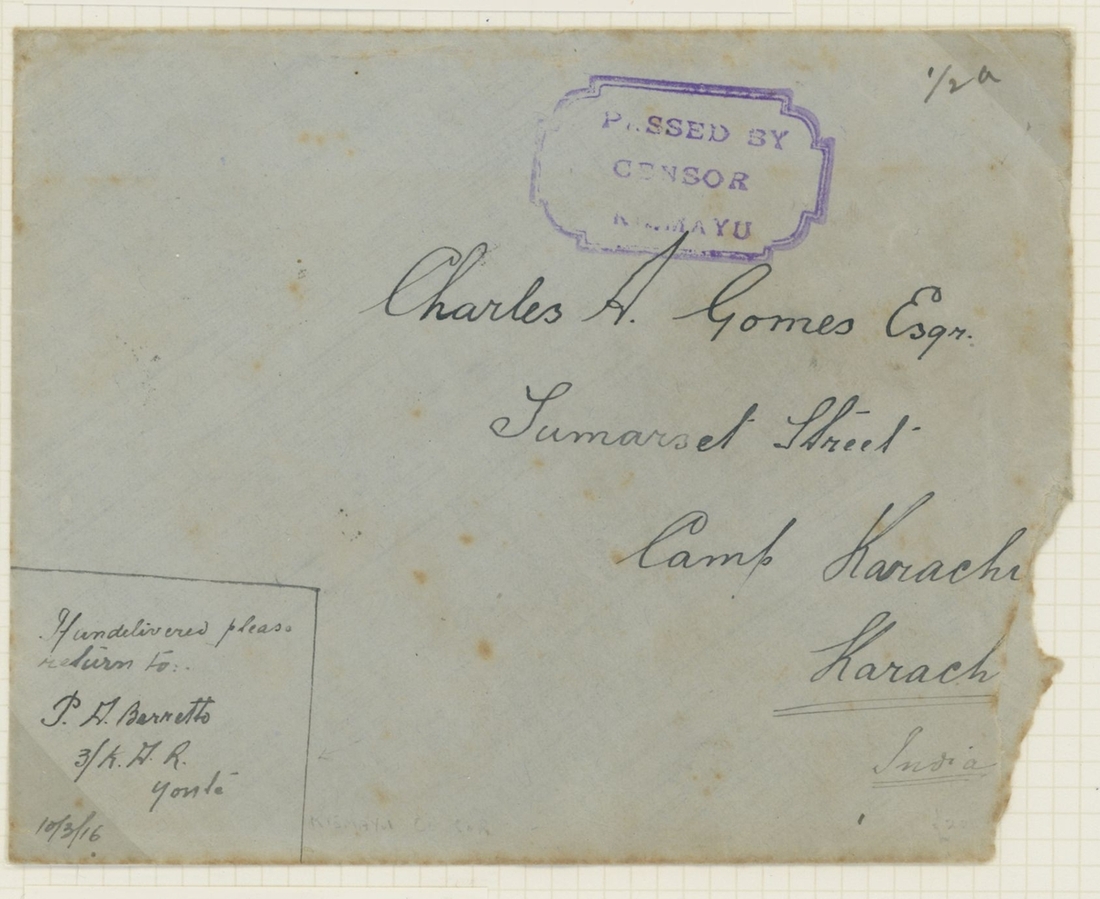 1/2 a
PASSED BY
CENSOR
KISMAYU
Charles A. Gomes Esqr.
Sumarset Street
Camp Karachi
Karach
India
If undelivered please
return to:.
P. A. Barretto
3/K. A. R.
Yonte
10/3/16